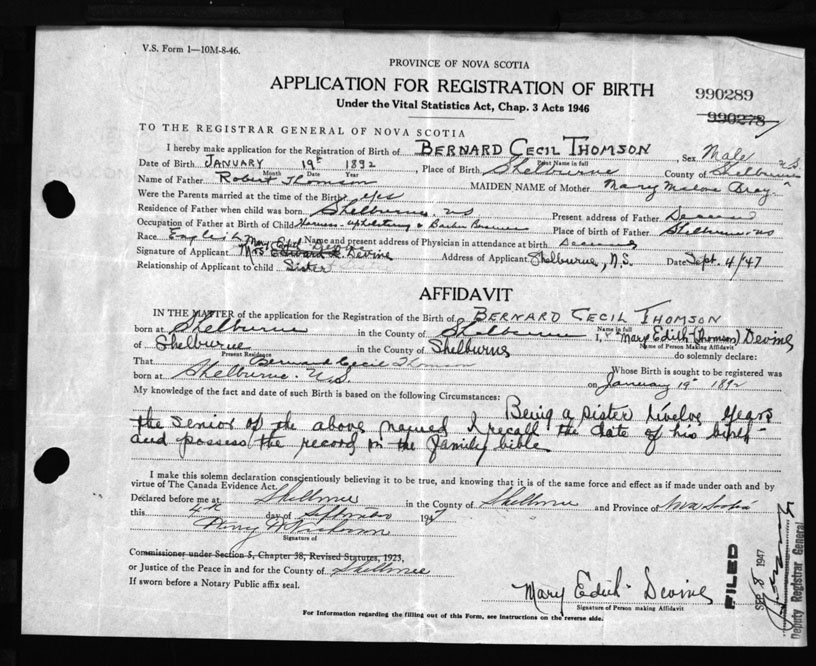 V.S. Form 1—10M-8-46.
PROVINCE OF NOVA SCOTIA
APPLICATION FOR REGISTRATION OF BIRTH
990289
Under the Vital Statistics Act, Chap. 3 Acts 1946
990278
TO THE REGISTRAR GENERAL OF NOVA SCOTIA
I hereby make application for the Registration of Birth of BERNARD CECIL THOMSON, Sex Male
Print Name in full
Date of Birth JANUARY 19th 1892, Place of Birth Shelburne County of Shelburne N.S.
Month Date Year
Name of Father Robert Thomson MAIDEN NAME of Mother Mary Bray
Were the Parents married at the time of the Birth? yes
Residence of Father when child was born Shelburne, NS Present address of Father
Occupation of Father at Birth of Child Harness-Upholstering & Barber Business Place of birth of Father Shelburne NS
Race English Name and present address of Physician in attendance at birth
Mary Edith Devine
Signature of Applicant Mrs Edward Devine Address of Applicant Shelburne, N.S. Date Sept. 4/47
Relationship of Applicant to child Sister
AFFIDAVIT
IN THE MATTER of the application for the Registration of the Birth of BERNARD CECIL THOMSON
Name in full
born at Shelburne in the County of Shelburne I, Mary Edith (Thomson) Devine
Name of Person Making Affidavit
of Shelburne in the County of Shelburne do solemnly declare:
Present Residence
That Bernard Cecil Thomson Whose Birth is sought to be registered was
born at Shelburne. N.S. on January 19th 1892
My knowledge of the fact and date of such Birth is based on the following Circumstances:
Being a sister twelve years
the senior of the above named I recall the date of his birth
and possess the record in the family bible
I make this solemn declaration conscientiously believing it to be true, and knowing that it is of the same force and effect as if made under oath and by
virtue of The Canada Evidence Act.
Declared before me at Shelburne in the County of Shelburne and Province of Nova Scotia
this 4th day of September 1947
Signature of
Commissioner under Section 5, Chapter 38, Revised Statutes, 1923,
or Justice of the Peace in and for the County of Shelburne
If sworn before a Notary Public affix seal.
Mary Edith Devine
Signature of Person making Affidavit
For Information regarding the filling out of this Form, see instructions on the reverse side.
FILED
SEP 8 1947
Deputy Registrar General